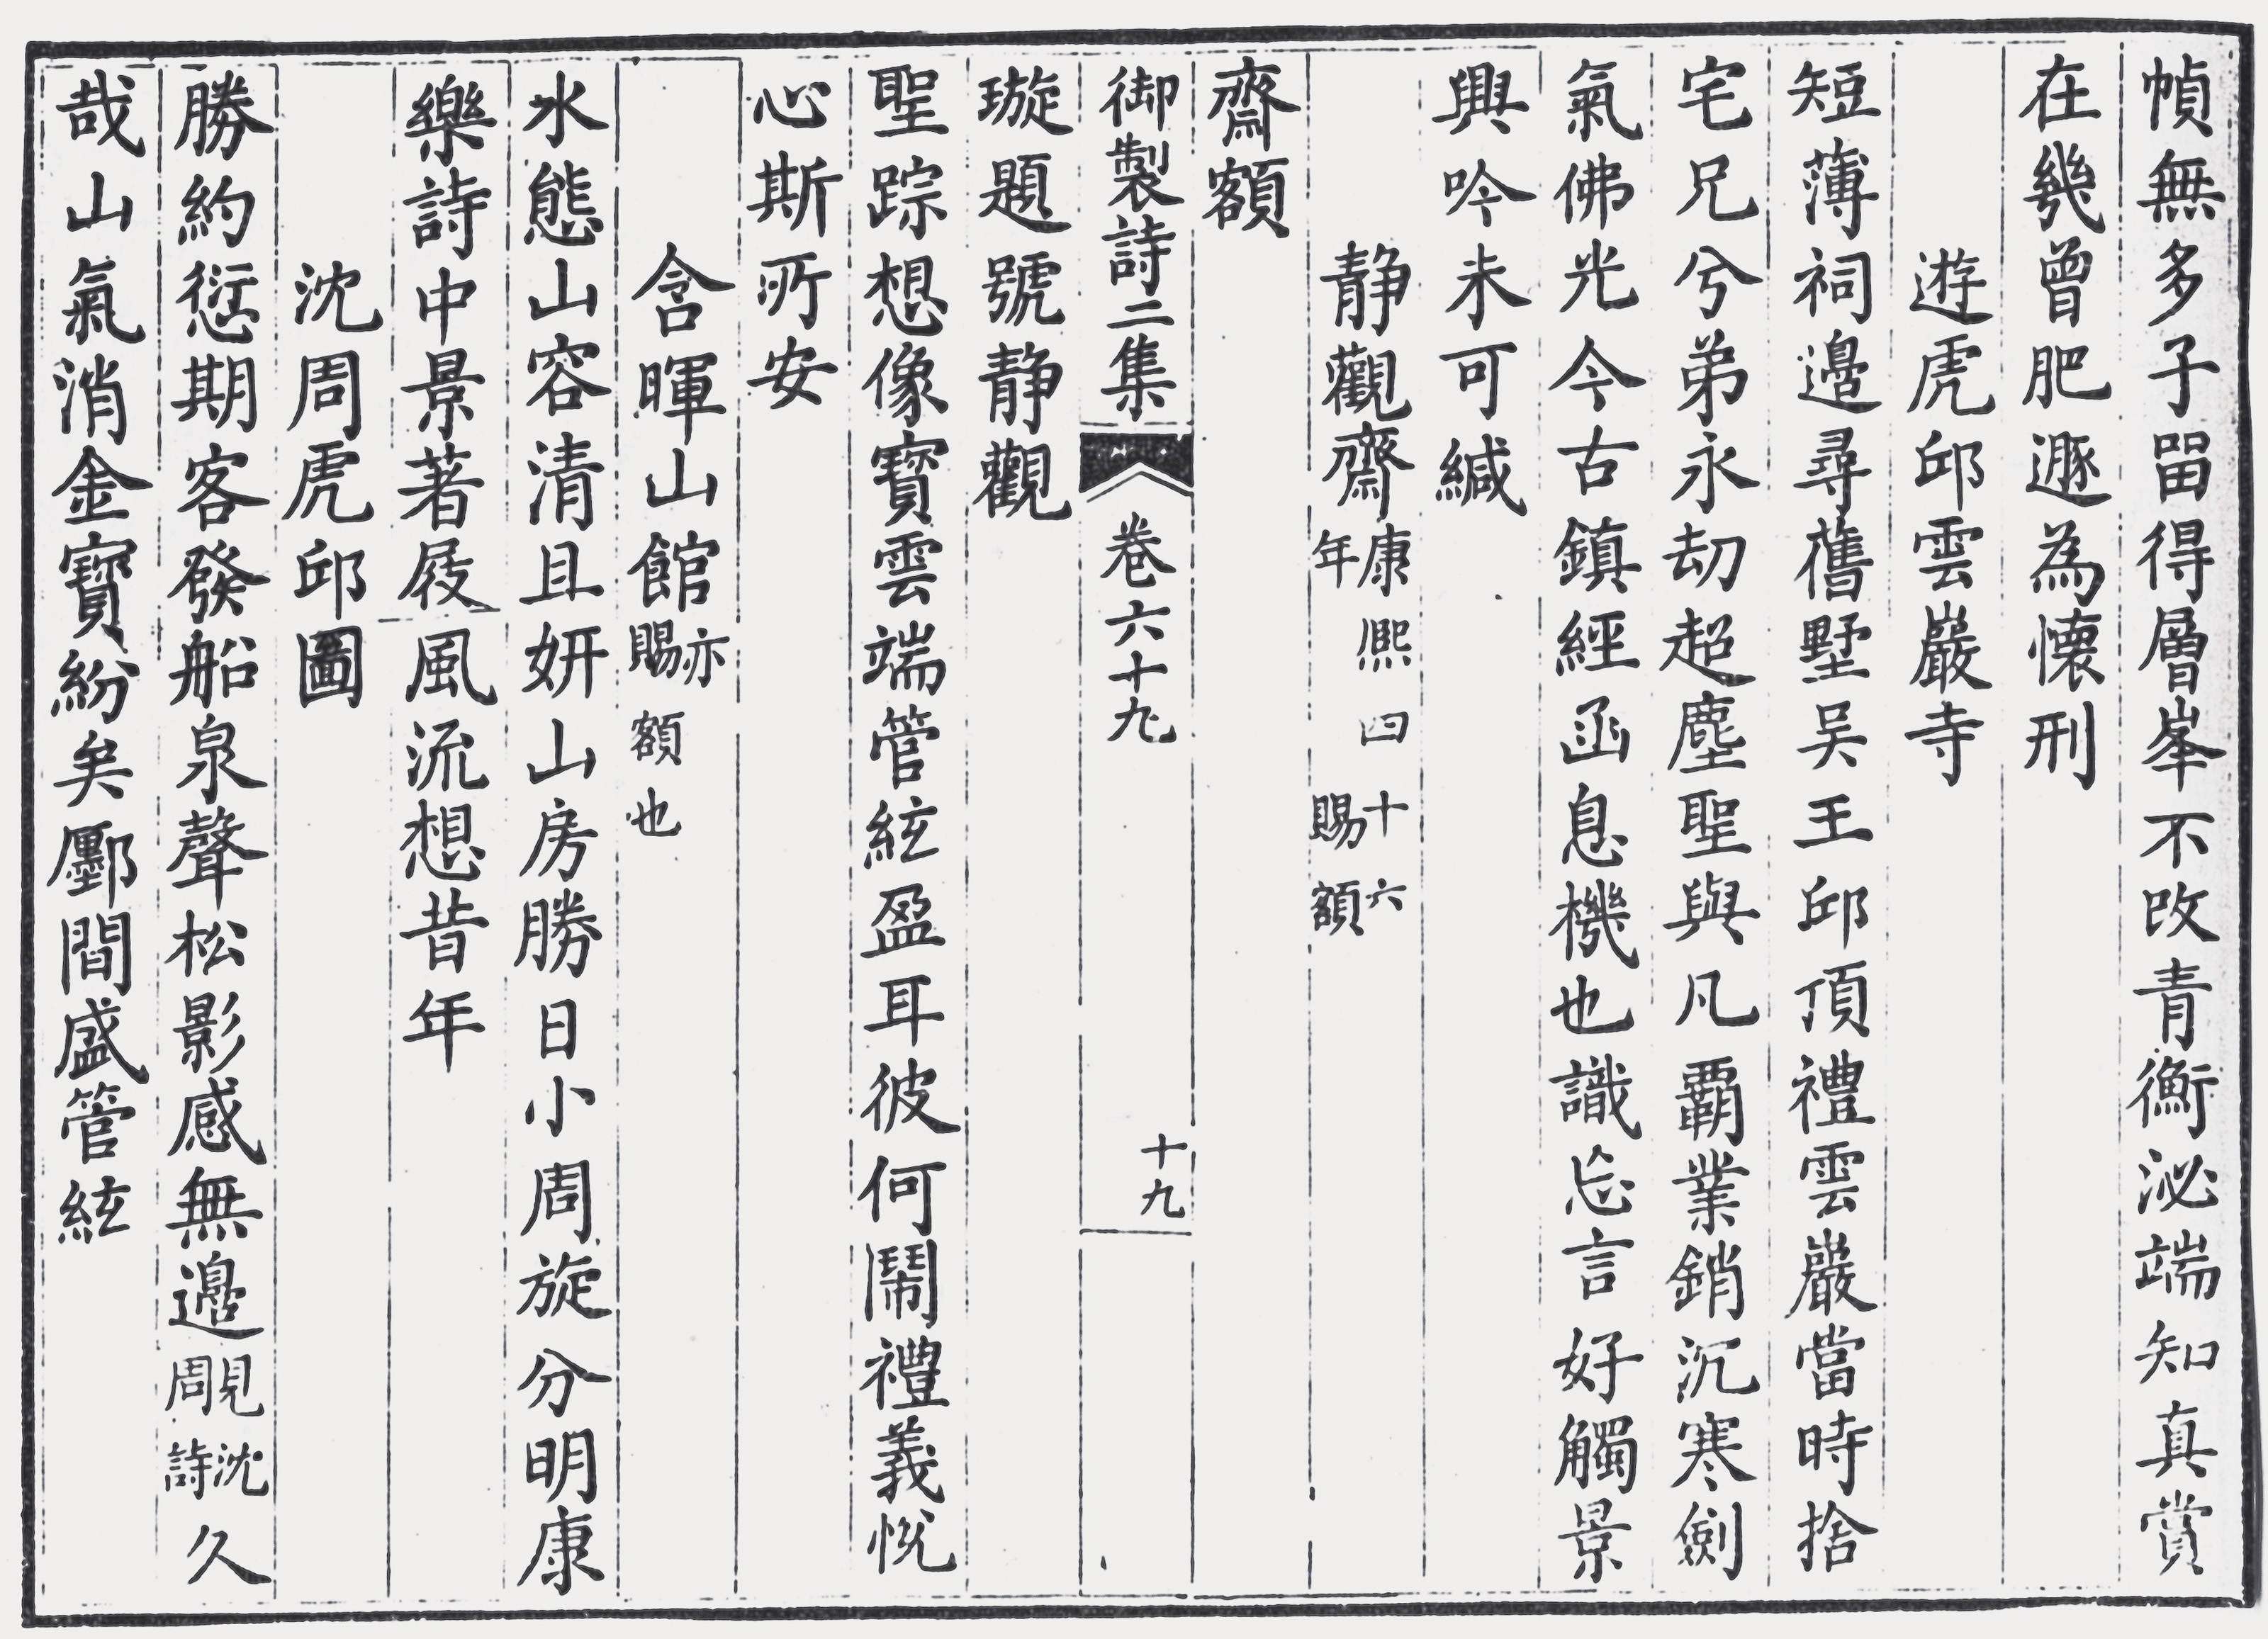 幀無多子畱得層峯不改青衡泌端知真賞
在幾曾肥遯為懷刑
遊虎邱雲巖寺
短薄祠邉尋舊墅吴王邱頂禮雲巖當時捨
宅兄兮弟永刼超塵聖與凡覇業銷沉寒劍
氣佛光今古鎮經函息機也識忘言好觸景
興吟未可緘
静觀齋康熙四十六年賜額
齋額
御製詩二集 卷六十九 十九
璇題號静觀
聖踪想像寳雲端管絃盈耳彼何鬧禮義悅
心斯所安
含暉山館亦賜額也
水態山容清且妍山房勝日小周旋分明康
樂詩中景著屐風流想昔年
沈周虎邱圖
勝約愆期客發船泉聲松影感無邉見沈周詩久
哉山氣消金寳紛矣鄽間盛管絃